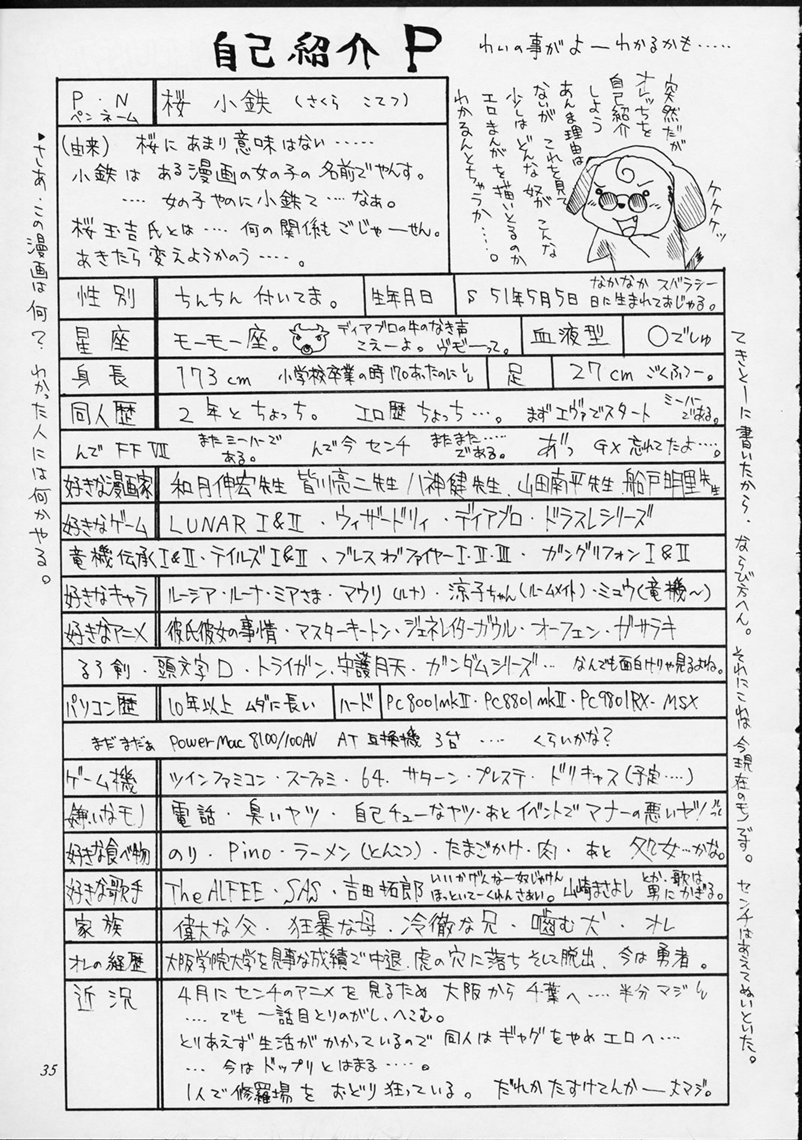 自己紹介 P
わいの事がよーわかるかも……
突然だが
オレっちを
自己紹介
しよう
あんま理由は
ないが これを見て
少しはどんな奴が こんな
エロまんがを描いとるのか
わかるんとちゃうか…。
ケケケッ
P・N
ペンネーム
桜 小鉄 (さくら こてつ)
(由来) 桜にあまり意味はない……
小鉄は ある漫画の女の子の名前でやんす。
…… 女の子やのに小鉄て … なぁ。
桜玉吉氏とは…… 何の関係もごじゃーせん。
あきたら変えようかのう……。
性別 ちんちん付いてま。 生年月日 S 51年5月5日 なかなか スバラシー日に生まれておじゃる。
星座 モーモー座。 ディアブロの牛のなき声 こえーよ。ヴモーって。 血液型 ○でしゅ
身長 173cm 小学校卒業の時170あったのに 足 27cm ごくふつー。
同人歴 2年とちょっち。 エロ歴ちょっち…。 まずエヴァでスタート ミーハーである。
んで FFⅦ またミーハーである。 んで今 センチ またまた……である。 あっ GX 忘れてたよ…。
好きな漫画家 和月伸宏先生 皆川亮二先生 八神健先生、山田南平先生、船戸明里先生
好きなゲーム LUNAR I&II・ウィザードリィ・ディアブロ・ドラスレシリーズ
竜機伝承I&II・テイルズI&II、ブレスオブファイヤーI・II・III・ ガングリフォンI&II
好きなキャラ ルーシア・ルーナ・ミアさま・マウリ(ルナ)・涼子ちゃん(ルームメイト)・ミュウ(竜機〜)
好きなアニメ 彼氏彼女の事情・マスターキートン・ジェネレイターガウル・オーフェン・ガサラキ
るろ剣・頭文字D・トライガン、守護月天・ガンダムシリーズ… なんでも面白けりゃ見るよね。
パソコン歴 10年以上 ムダに長い ハード PC8001mkII・PC8801mkII・PC9801RX・MSX
まだまだぁ PowerMac 8100/100AV AT互換機 3台 …… くらいかな?
ゲーム機 ツインファミコン・スーファミ・64・サターン・プレステ・ドリキャス(予定…)
嫌いなモノ 電話・臭いヤツ・自己チューなヤツ・あとイベントでマナーの悪いヤツ!
好きな食べ物 のり・Pino・ラーメン(とんこつ)・たまごかけ・肉・あと 処女…かな。
好きな歌手 The ALFEE・SAS・吉田拓郎 いいかげんなー奴じゃけん ほっといてーくれんさぁい。 山崎まさよし とか、歌は男にかぎる。
家族 偉大な父・狂暴な母・冷徹な兄・噛む犬・オレ
オレの経歴 大阪学院大学を見事な成績で中退、虎の穴に落ち そして脱出、今は勇者。
近況 4月にセンチのアニメを見るため 大阪から千葉へ…… 半分マジ
…… でも 一話目とりのがし、へこむ。
とりあえず生活がかかっているので 同人はギャグをやめ エロへ…
… 今はドップリとはまる……。
1人で修羅場を おどり狂っている。 だれかたすけてんかー 大マジ。
♥さあ、この漫画は何? わかった人には何かやる。
てきとーに書いたから、ならび方へん。それにこれは今現在のモンです。センチはあえてぬいといた。
35